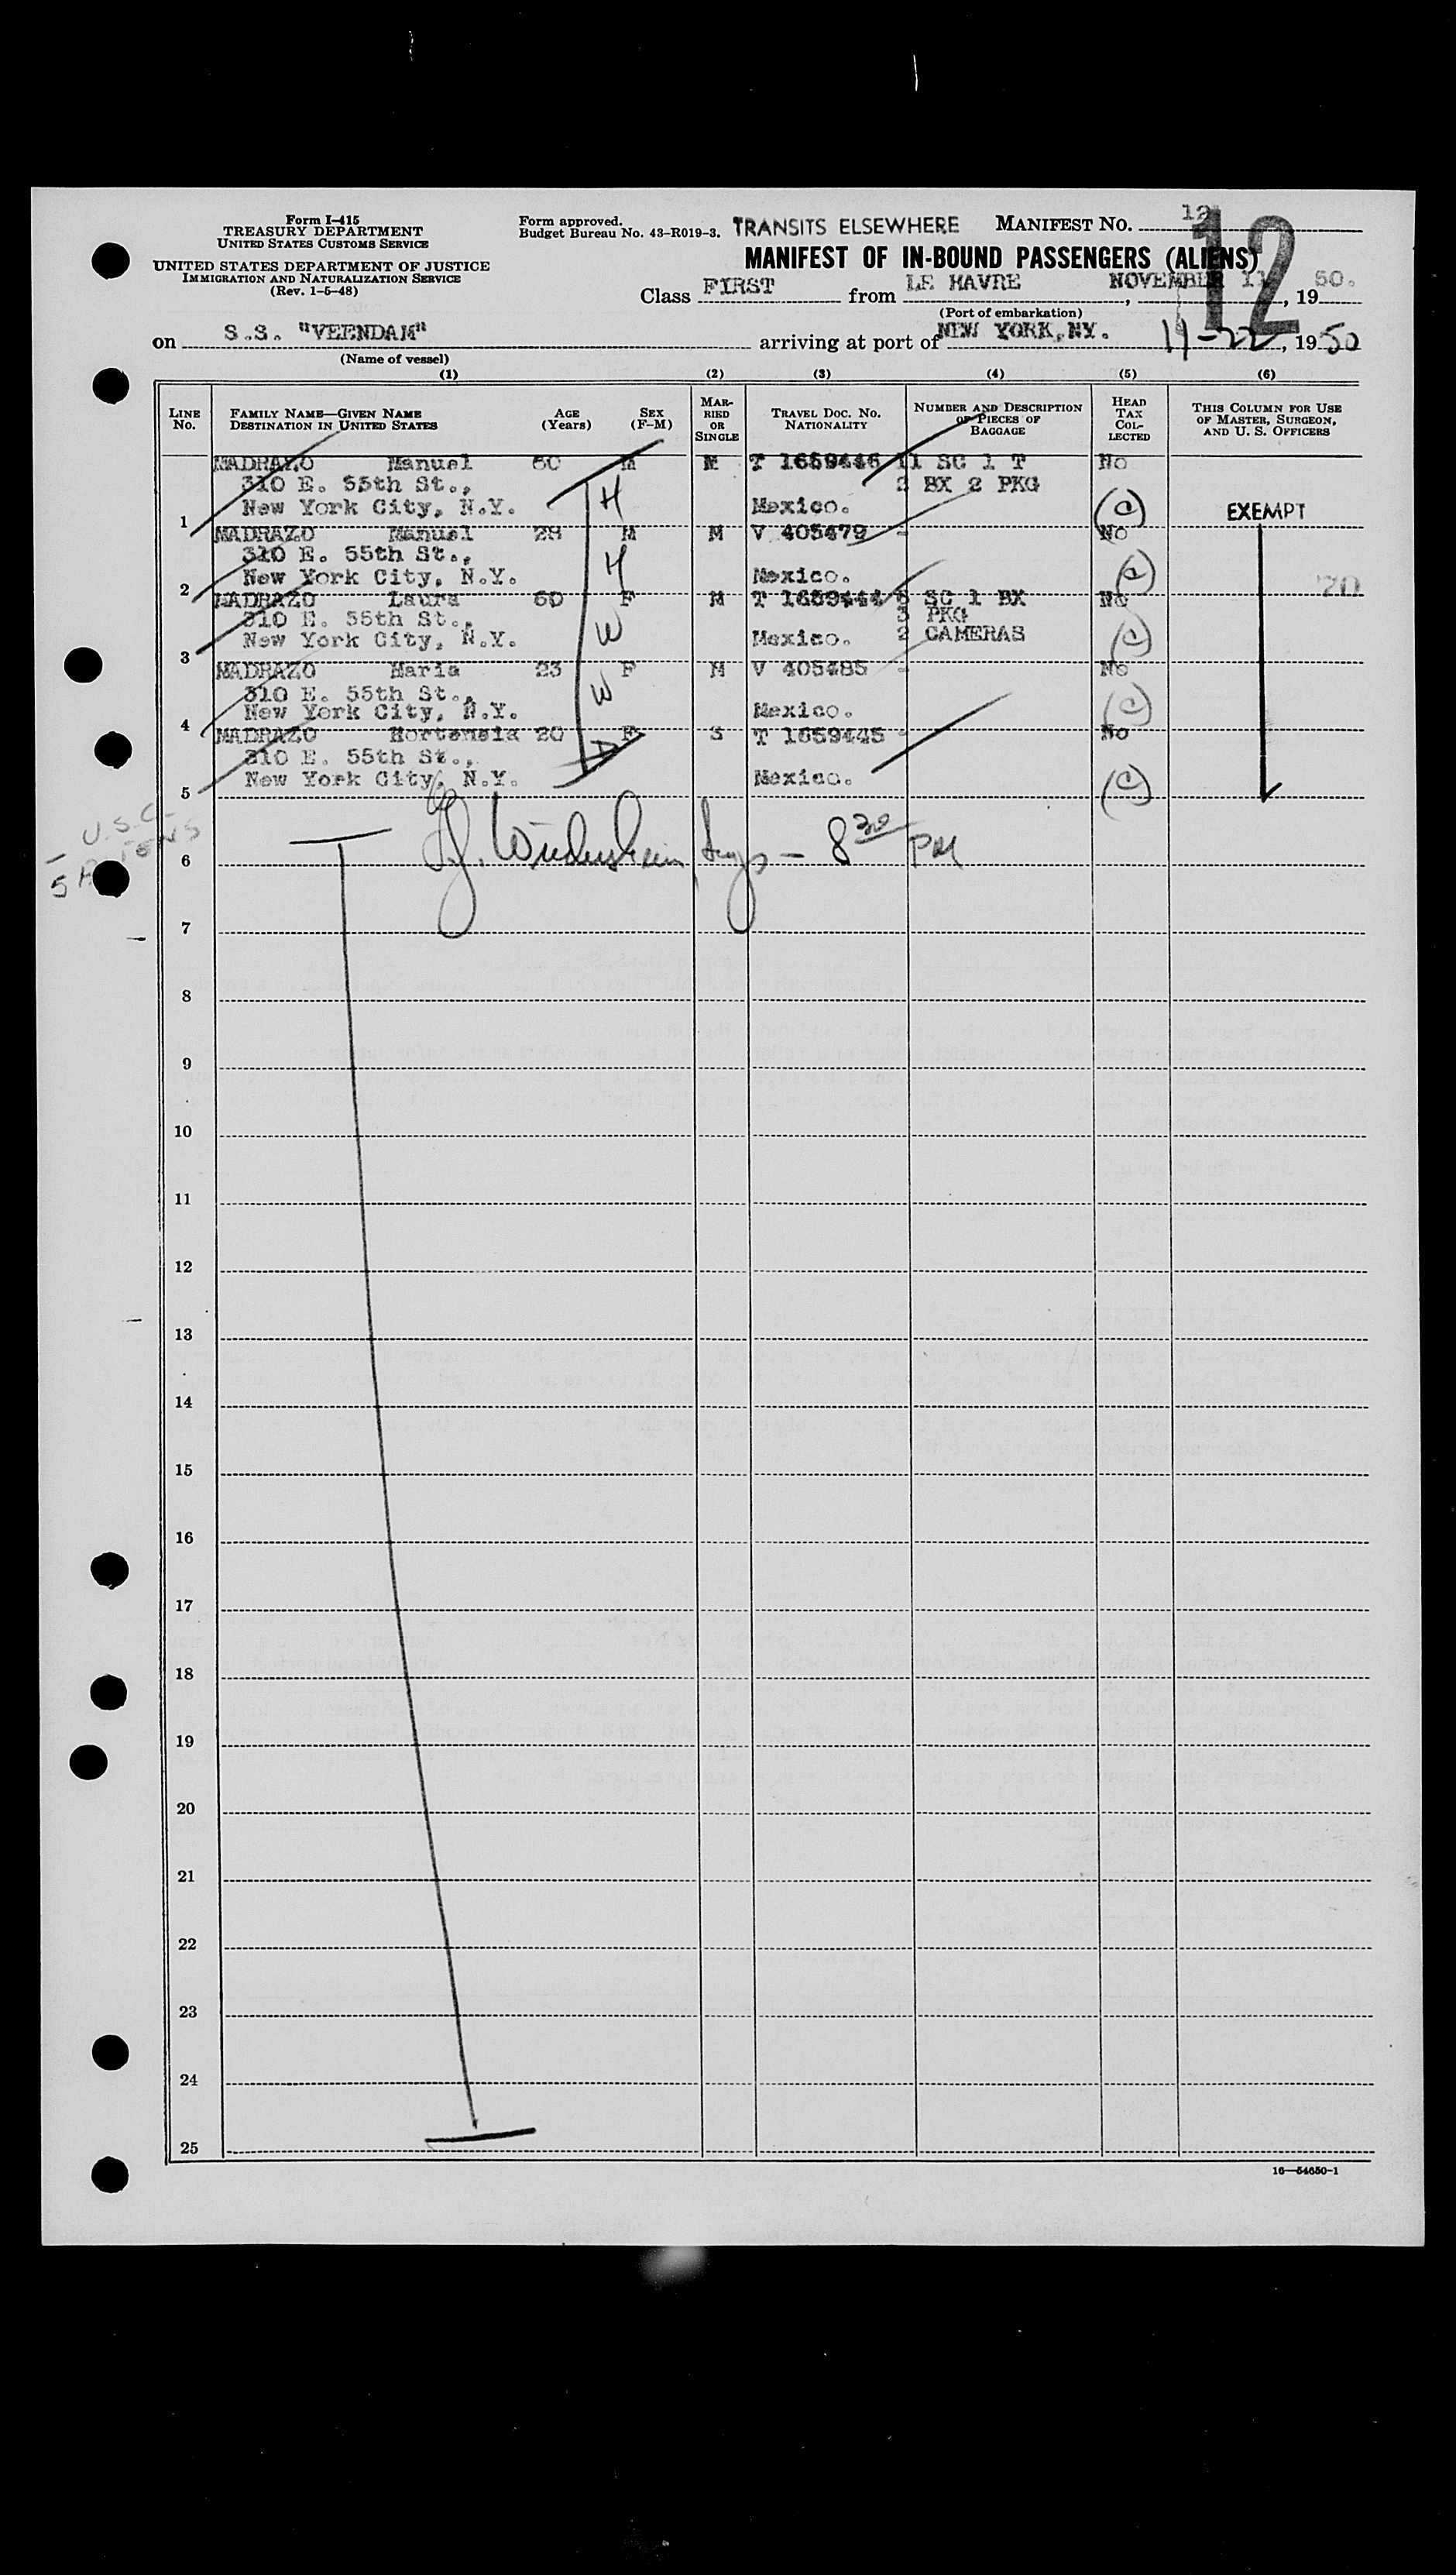 Form I-415
TREASURY DEPARTMENT
UNITED STATES CUSTOMS SERVICE
UNITED STATES DEPARTMENT OF JUSTICE
IMMIGRATION AND NATURALIZATION SERVICE
(Rev. 1-5-48)
Form approved.
Budget Bureau No. 43-R019-3.
TRANSITS ELSEWHERE
MANIFEST No. 12
12
MANIFEST OF IN-BOUND PASSENGERS (ALIENS)
Class FIRST from LE HAVRE, NOVEMBER 11, 1950.
(Port of embarkation)
on S.S. "VEENDAM" arriving at port of NEW YORK, NY. 11-22, 1950
(Name of vessel)
(1) (2) (3) (4) (5) (6)
LINE No.
FAMILY NAME—GIVEN NAME
DESTINATION IN UNITED STATES
AGE (Years)
SEX (F-M)
MARRIED OR SINGLE
TRAVEL DOC. NO.
NATIONALITY
NUMBER AND DESCRIPTION OF PIECES OF BAGGAGE
HEAD TAX COLLECTED
THIS COLUMN FOR USE OF MASTER, SURGEON, AND U. S. OFFICERS
MADRAZO Manuel 60 M M T 1659446 11 SC 1 T No
310 E. 55th St., BX 2 PKG
1 New York City, N.Y. H Mexico. (C) EXEMPT
MADRAZO Manuel 28 M M V 405479 - No
310 E. 55th St.,
2 New York City, N.Y. H Mexico. (C) 70
MADRAZO Laura 60 F M T 1659444 SC 1 BX No
310 E. 55th St., 3 PKG
3 New York City, N.Y. W Mexico. 2 CAMERAS (C)
MADRAZO Maria 23 F M V 405485 - No
310 E. 55th St.,
4 New York City, N.Y. W Mexico. (C)
MADRAZO Hortensia 20 F S T 1659445 - No
310 E. 55th St.,
5 New York City, N.Y. D Mexico. (C)
— U.S.C.
5 ALIENS
6 8 30 PM
7
8
9
10
11
12
13
14
15
16
17
18
19
20
21
22
23
24
25
16—54650-1